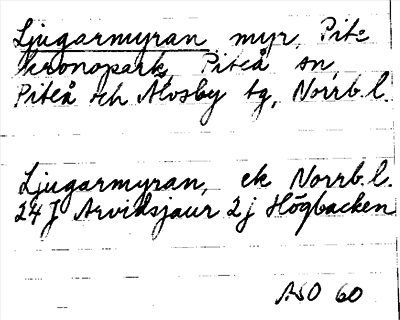 Ljugarmyran myr, Pite
kronopark, Piteå sn,
Piteå och Älvsby tg, Norrb. l.
Ljugarmyran, ek Norrb. l.
24 J Arvidsjaur 2 j Högbacken
ASO 60